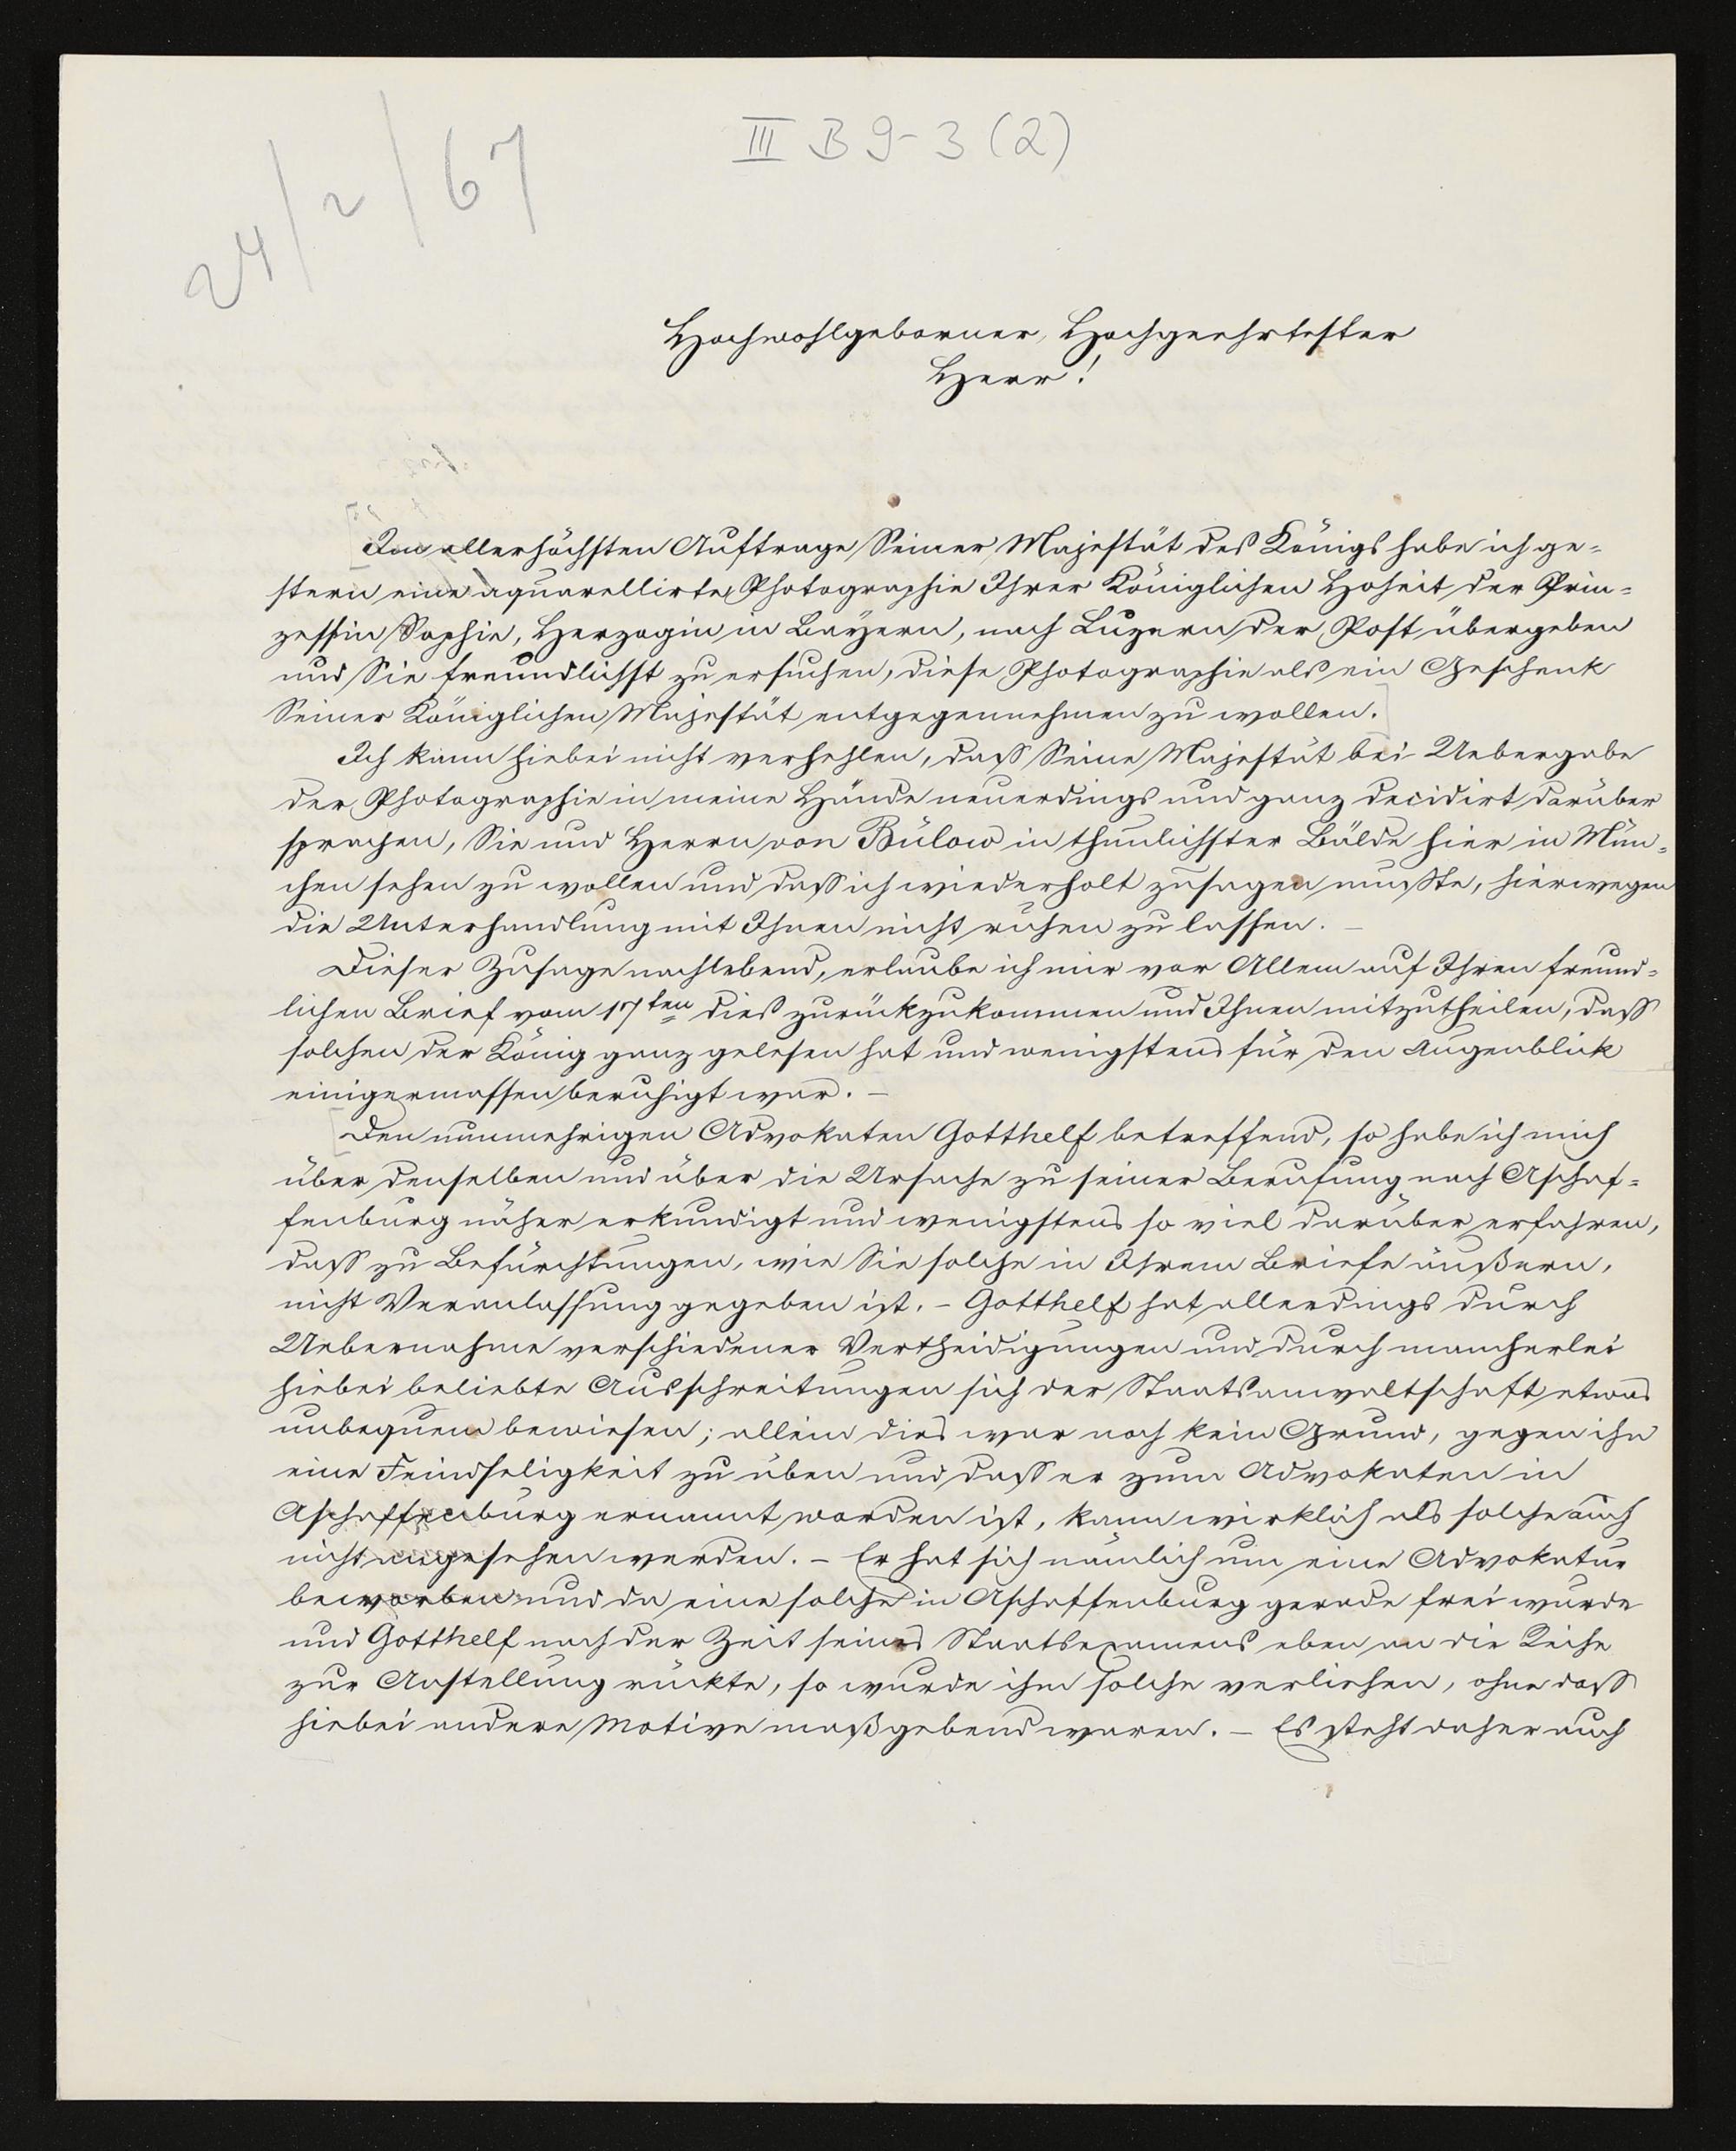 III B 9-3 (2)
24/2/67
Hochwohlgeborner, Hochgeehrtester
Herr!
Im allerhöchsten Auftrage Seiner Majestät des Königs habe ich ge-
stern eine aquarellirte Photographie Ihrer Königlichen Hoheit der Prin-
zessin Sophie, Herzogin in Bayern, nach Luzern der Post übergeben
und Sie freundlichst zu ersuchen, diese Photographie als ein Geschenk
Seiner Königlichen Majestät entgegennehmen zu wollen.
Ich kann hiebei nicht verhehlen, dass Seine Majestät bei Uebergabe
der Photographie in meine Hände neuerdings und ganz decidirt darüber
sprachen, Sie und Herrn von Bülow in thunlichster Bälde hier in Mün-
chen sehen zu wollen und dass ich wiederholt zusagen musste, hierwegen
die Unterhandlung mit Ihnen nicht ruhen zu lassen. –
Dieser Zusage nachlebend, erlaube ich mir vor Allem auf Ihren freund-
lichen Brief vom 17ten dies zurückzukommen und Ihnen mitzutheilen, dass
solchen der König ganz gelesen hat und wenigstens für den Augenblick
einigermassen beruhigt war. –
Den nunmehrigen Advokaten Gotthelf betreffend, so habe ich mich
über denselben und über die Ursache zu seiner Berufung nach Aschaf-
fenburg näher erkundigt und wenigstens so viel darüber erfahren,
dass zu Befürchtungen, wie Sie solche in Ihrem Briefe äußern,
nicht Veranlassung gegeben ist. – Gotthelf hat allerdings durch
Uebernahme verschiedener Vertheidigungen und durch mancherlei
hiebei beliebte Ausschreitungen sich der Staatsanwaltschaft etwas
unbequem bewiesen; allein dies war noch kein Grund, gegen ihn
eine Feindseligkeit zu üben und dass er zum Advokaten in
Aschaffenburg ernannt worden ist, kann wirklich als solche auch
nicht angesehen werden. – Er hat sich nämlich um eine Advokatur
beworben und da eine solche in Aschaffenburg gerade frei wurde
und Gotthelf nach der Zeit seines Staatsexamens eben an die Reihe
zur Anstellung rückte, so wurde ihm solche verliehen, ohne dass
hiebei andere Motive maßgebend waren. – Es steht daher auch